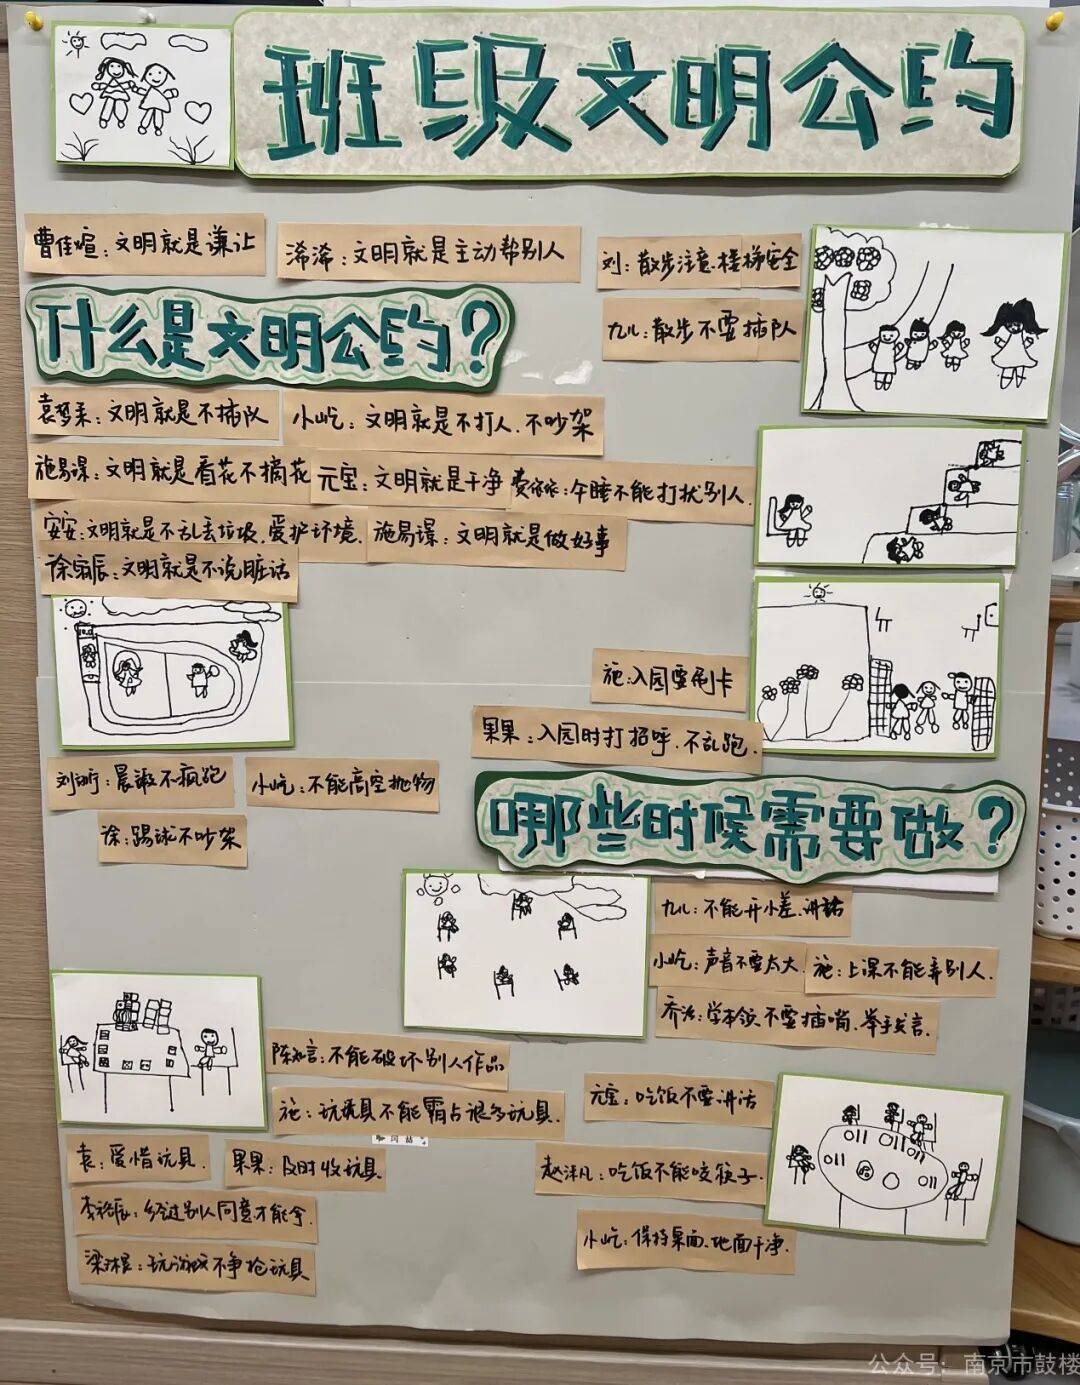 班级文明公约
曹佳煊：文明就是谦让
浠浠：文明就是主动帮别人
刘：散步注意楼梯安全
九儿：散步不要插队
什么是文明公约？
袁梦柔：文明就是不插队
小屹：文明就是不打人、不吵架
施易谋：文明就是看花不摘花
元宝：文明就是干净
家家：午睡不能打扰别人.
安安：文明就是不乱丢垃圾、爱护环境.
施易谋：文明就是做好事
徐辰：文明就是不说脏话
施：入园要刷卡
果果：入园时打招呼、不乱跑.
刘：晨锻不疯跑
小屹：不能高空抛物
徐：踢球不吵架
哪些时候需要做？
九儿：不能开小差、讲话
小屹：声音不要太大
施：上课不能弄别人.
乔治：学本领不要插嘴、举手发言.
陈知言：不能破坏别人作品
施：玩玩具不能霸占很多玩具.
元宝：吃饭不要讲话
袁：爱惜玩具.
果果：及时收玩具
赵沐凡：吃饭不能咬筷子.
李裕辰：经过别人同意才能拿.
小屹：保持桌面、地面干净.
梁：玩游戏不争抢玩具
公众号：南京市鼓楼